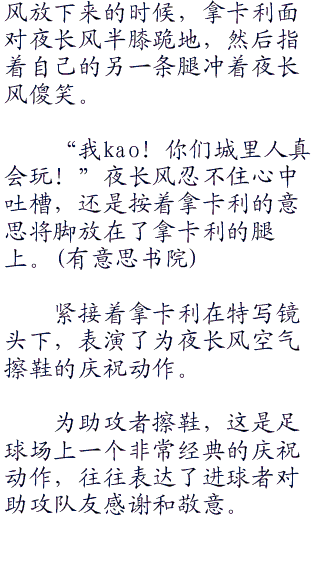 风放下来的时候，拿卡利面
对夜长风半膝跪地，然后指
着自己的另一条腿冲着夜长
风傻笑。
“我kao！你们城里人真
会玩！”夜长风忍不住心中
吐槽，还是按着拿卡利的意
思将脚放在了拿卡利的腿
上。(有意思书院)
紧接着拿卡利在特写镜
头下，表演了为夜长风空气
擦鞋的庆祝动作。
为助攻者擦鞋，这是足
球场上一个非常经典的庆祝
动作，往往表达了进球者对
助攻队友感谢和敬意。